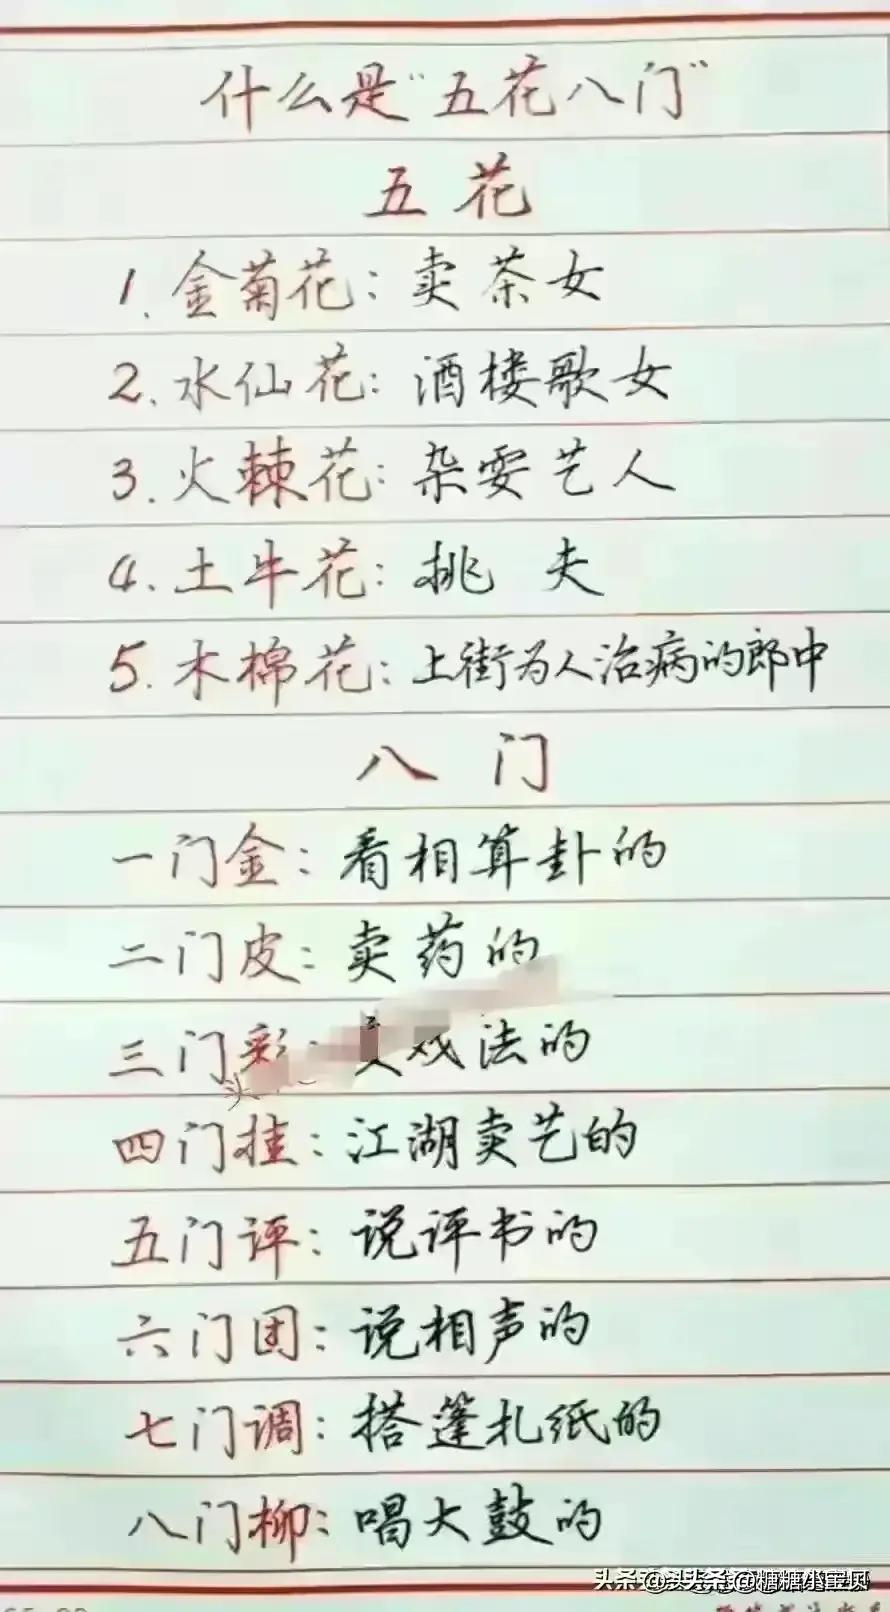 什么是“五花八门”
五花
1.金菊花：卖茶女
2.水仙花：酒楼歌女
3.火棘花：杂耍艺人
4.土牛花：挑夫
5.木棉花：上街为人治病的郎中
八门
一门金：看相算卦的
二门皮：卖药的
三门彩：戏法的
四门挂：江湖卖艺的
五门评：说评书的
六门团：说相声的
七门调：搭篷扎纸的
八门柳：唱大鼓的
头条@糖糖小宝贝